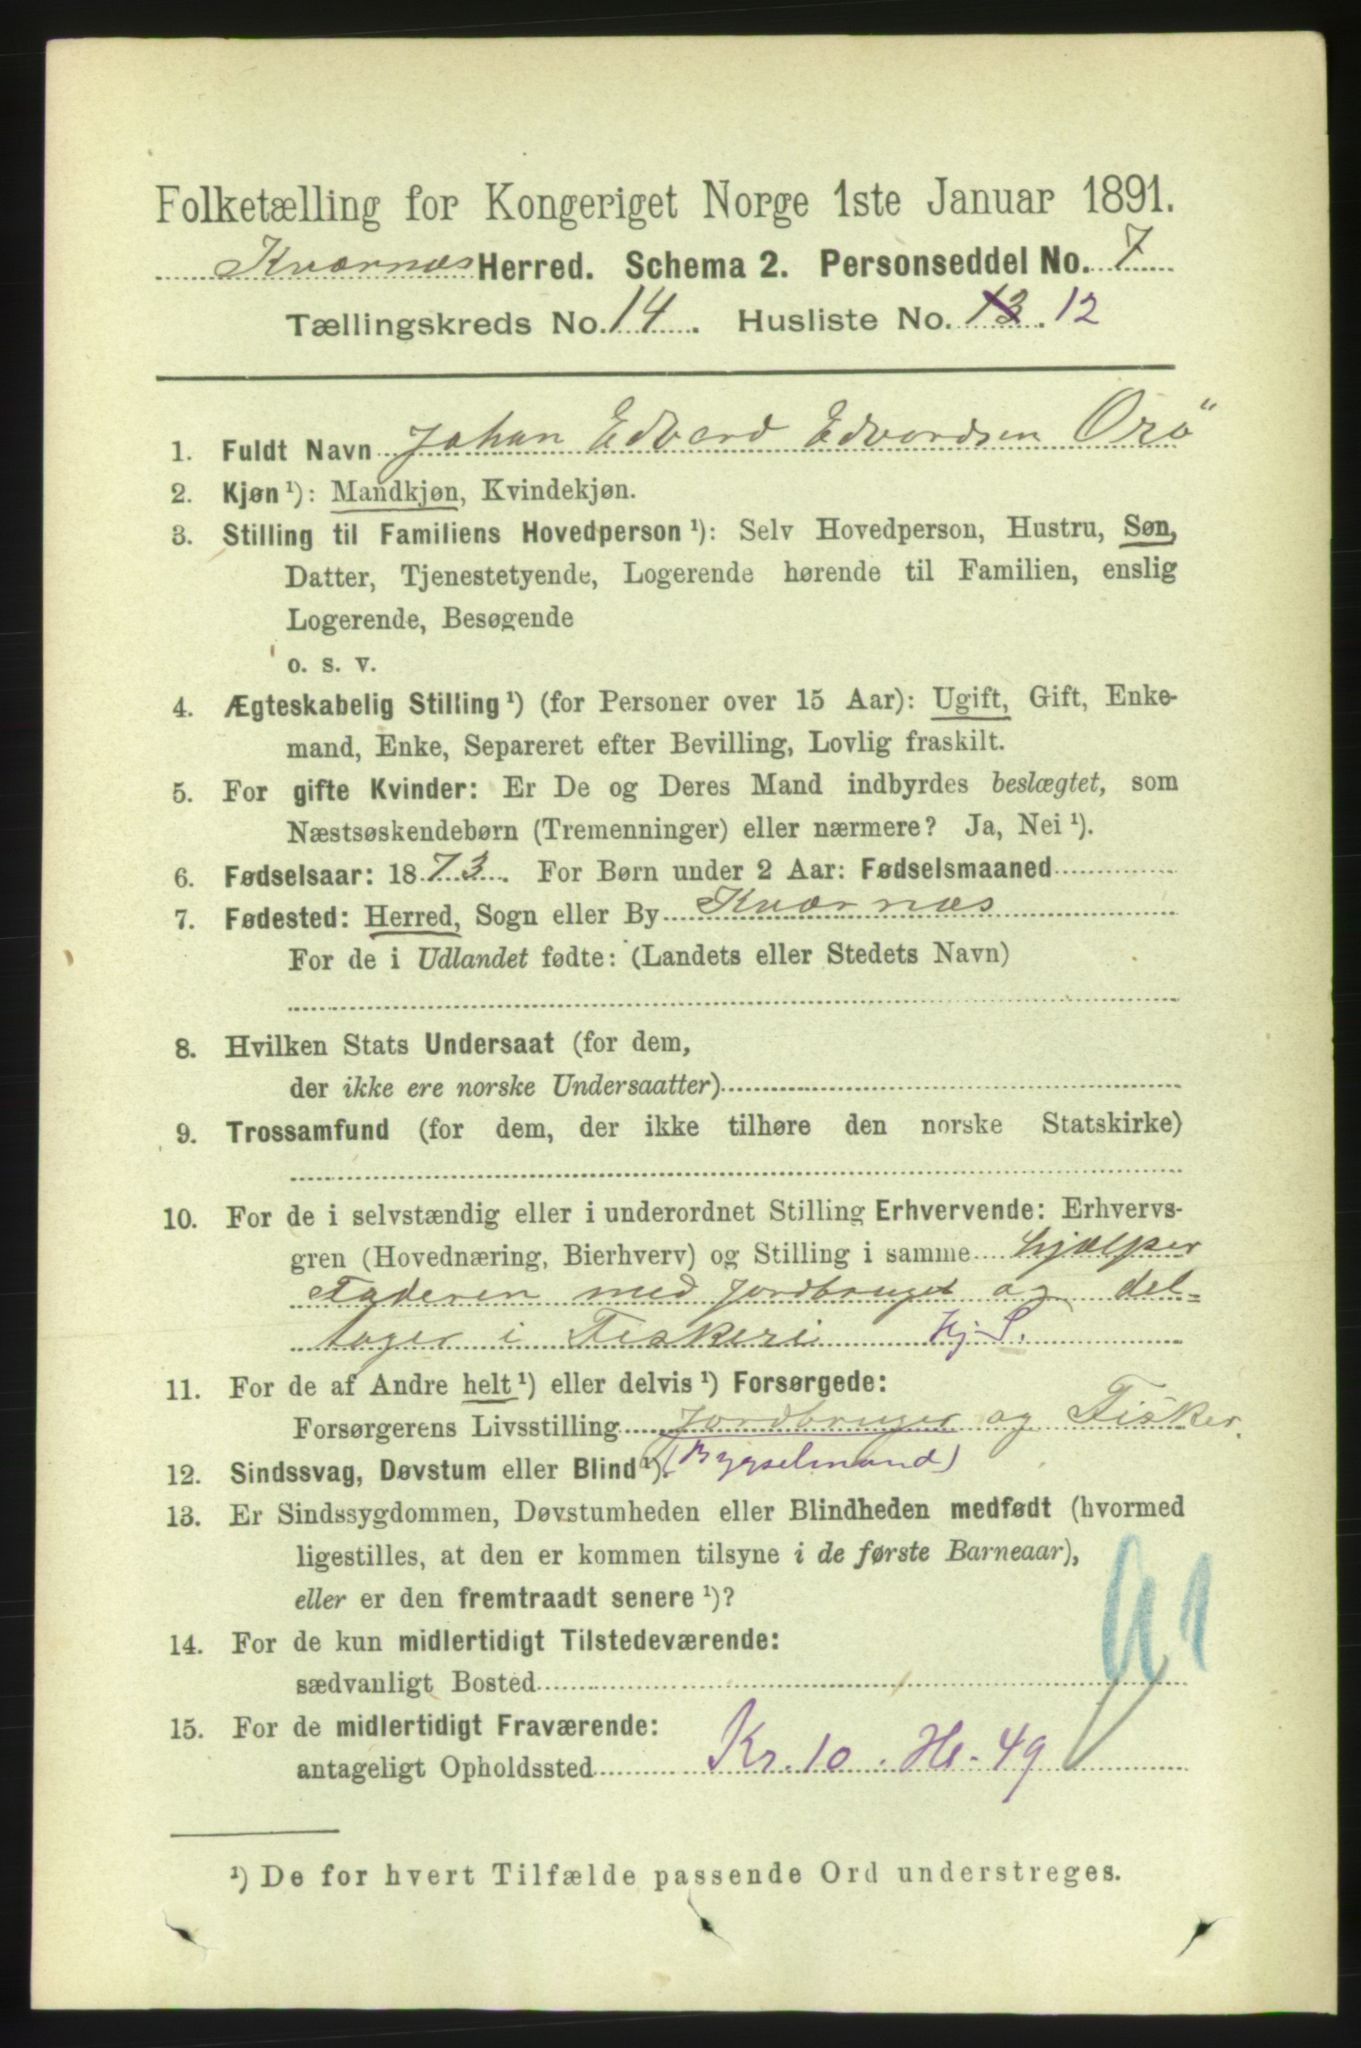 Folketælling for Kongeriget Norge 1ste Januar 1891.
Kværnæs Herred. Schema 2. Personseddel No. 7
Tællingskreds No. 14. Husliste No. 13. 12
1. Fuldt Navn Johan Edvard Edvardsen Orö
2. Kjøn ¹): Mandkjøn, Kvindekjøn.
3. Stilling til Familiens Hovedperson ¹): Selv Hovedperson, Hustru, Søn,
Datter, Tjenestetyende, Logerende hørende til Familien, enslig
Logerende, Besøgende
o. s. v.
4. Ægteskabelig Stilling ¹) (for Personer over 15 Aar): Ugift, Gift, Enke-
mand, Enke, Separeret efter Bevilling, Lovlig fraskilt.
5. For gifte Kvinder: Er De og Deres Mand indbyrdes beslægtet, som
Næstsøskendebørn (Tremenninger) eller nærmere? Ja, Nei ¹).
6. Fødselsaar: 1873. For Børn under 2 Aar: Fødselsmaaned
7. Fødested: Herred, Sogn eller By Kværnæs
For de i Udlandet fødte: (Landets eller Stedets Navn)
8. Hvilken Stats Undersaat (for dem,
der ikke ere norske Undersaatter)
9. Trossamfund (for dem, der ikke tilhøre den norske Statskirke)
10. For de i selvstændig eller i underordnet Stilling Erhvervende: Erhvervs-
gren (Hovednæring, Bierhverv) og Stilling i samme hjælper
Faderen med Jordbruget og del-
tager i Fiskeri Hj. S.
11. For de af Andre helt ¹) eller delvis ¹) Forsørgede:
Forsørgerens Livsstilling Jordbruger og Fisker.
12. Sindssvag, Døvstum eller Blind ¹). (Bygselmand)
13. Er Sindssygdommen, Døvstumheden eller Blindheden medfødt (hvormed
ligestilles, at den er kommen tilsyne i de første Barneaar),
eller er den fremtraadt senere ¹)?
14. For de kun midlertidigt Tilstedeværende:
sædvanligt Bosted
15. For de midlertidigt Fraværende:
antageligt Opholdssted Kr. 10. Hl. 49
¹) De for hvert Tilfælde passende Ord understreges.